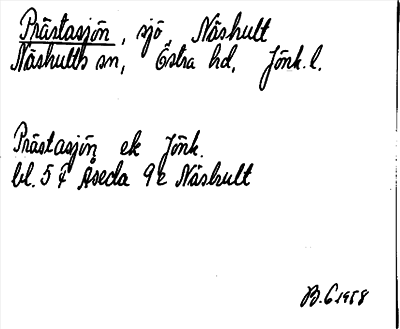 Prästasjön, sjö, Näshult
Näshults sn, Östra hd, Jönk. l.
Prästasjön ek Jönk.
bl. 5 f Åseda 9e Näshult
B. G 1958